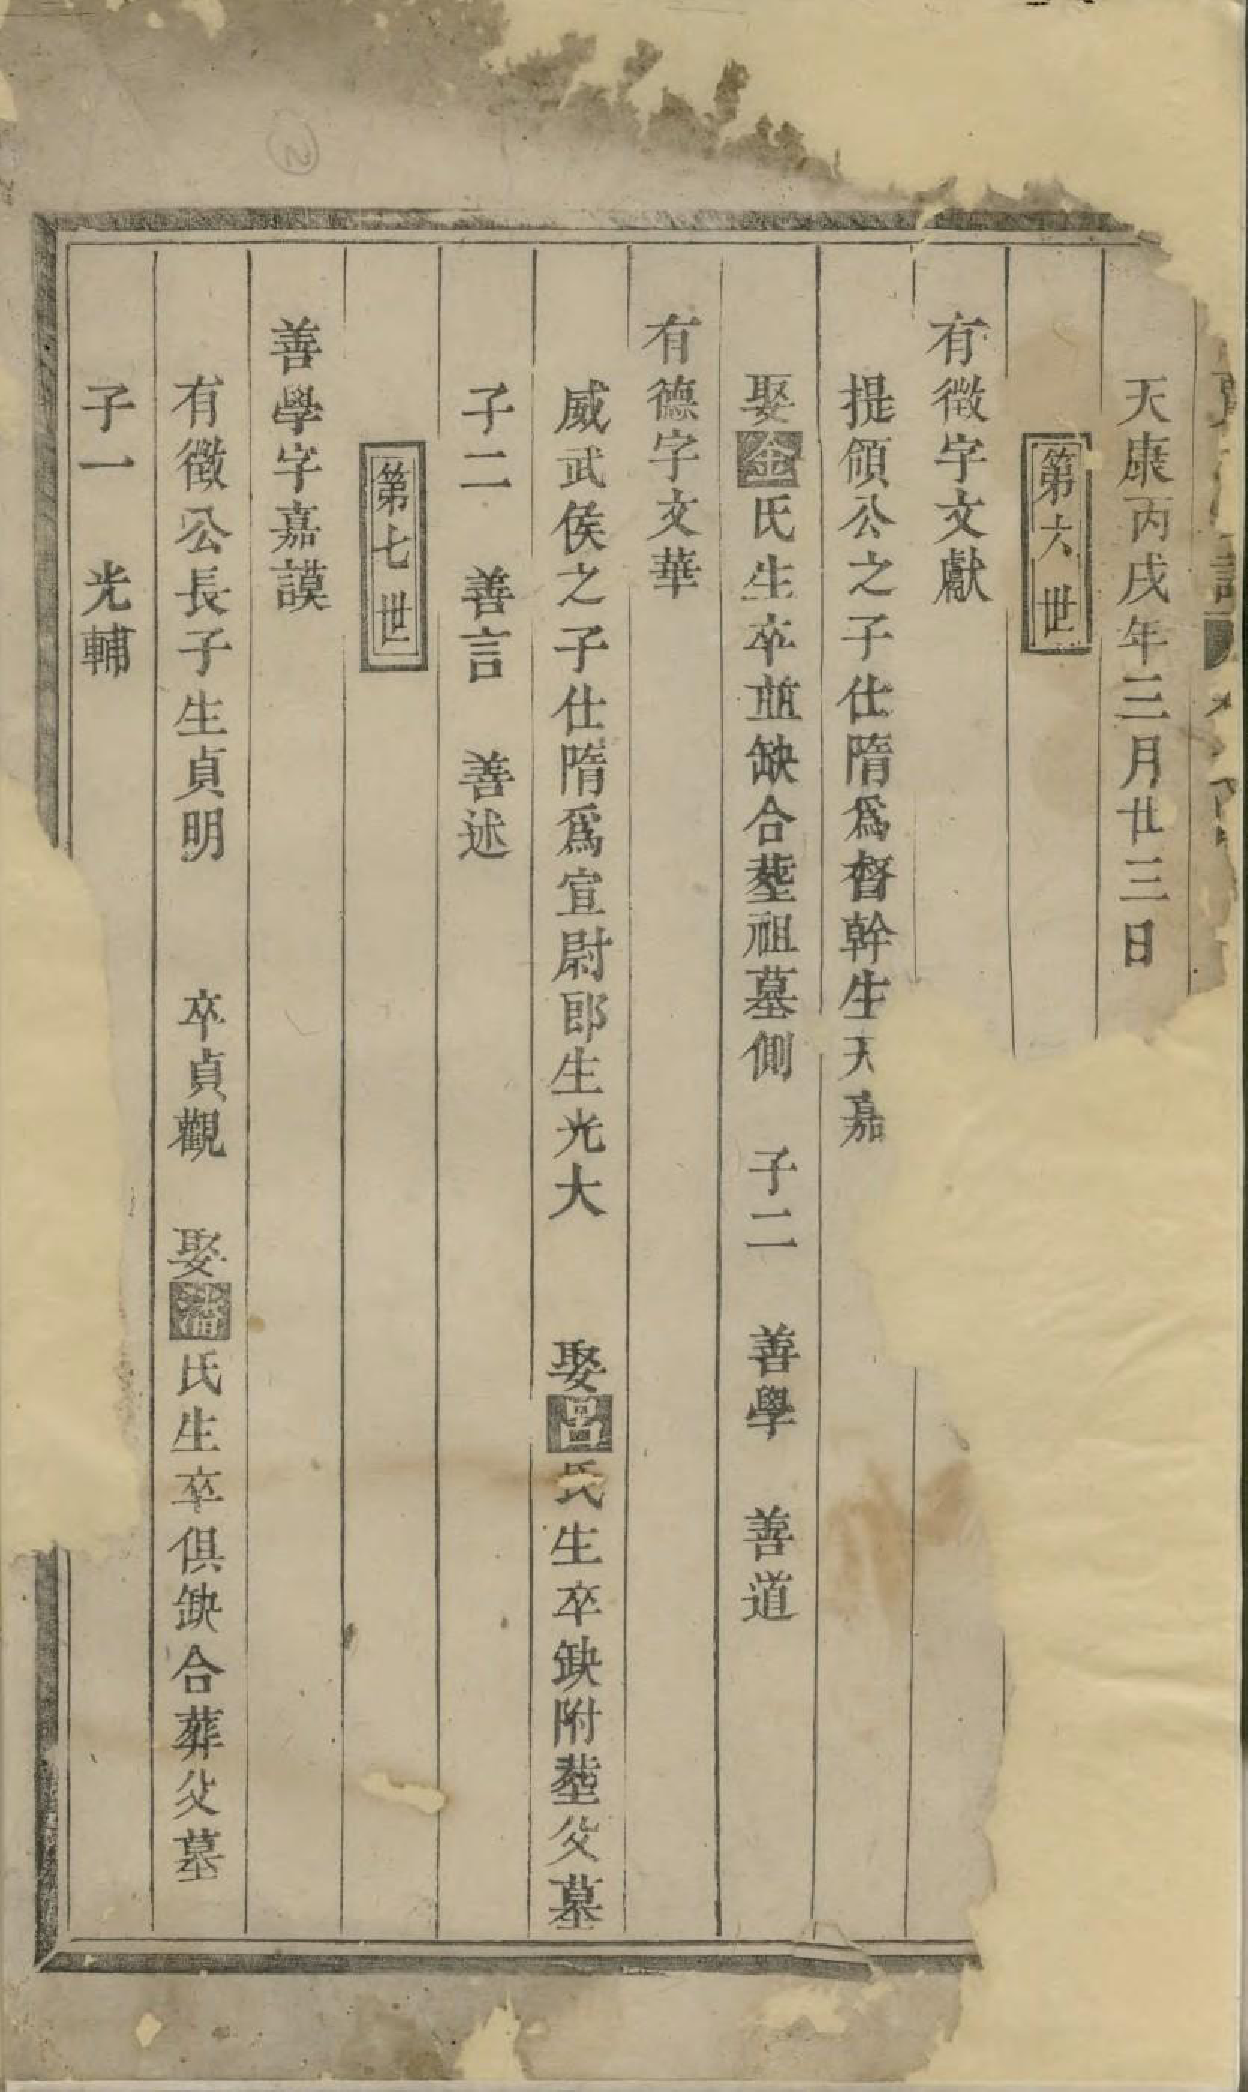 天康丙戌年三月廿三日
第六世
有徵字文獻
提領公之子仕隋爲督幹生天嘉
娶金氏生卒並缺合塟祖墓側 子二 善學 善道
有德字文華
威武侯之子仕隋爲宣尉郎生光大 娶呂氏生卒缺附塟父墓
子二 善言 善述
第七世
善學字嘉謨
有徵公長子生貞明 卒貞觀 娶潘氏生卒俱缺合葬父墓
子一 光輔